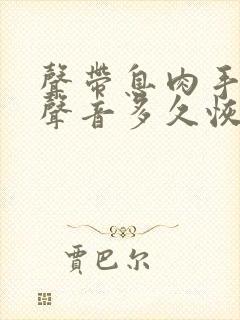 聲帶息肉手
聲音多久恢
賈巴尔